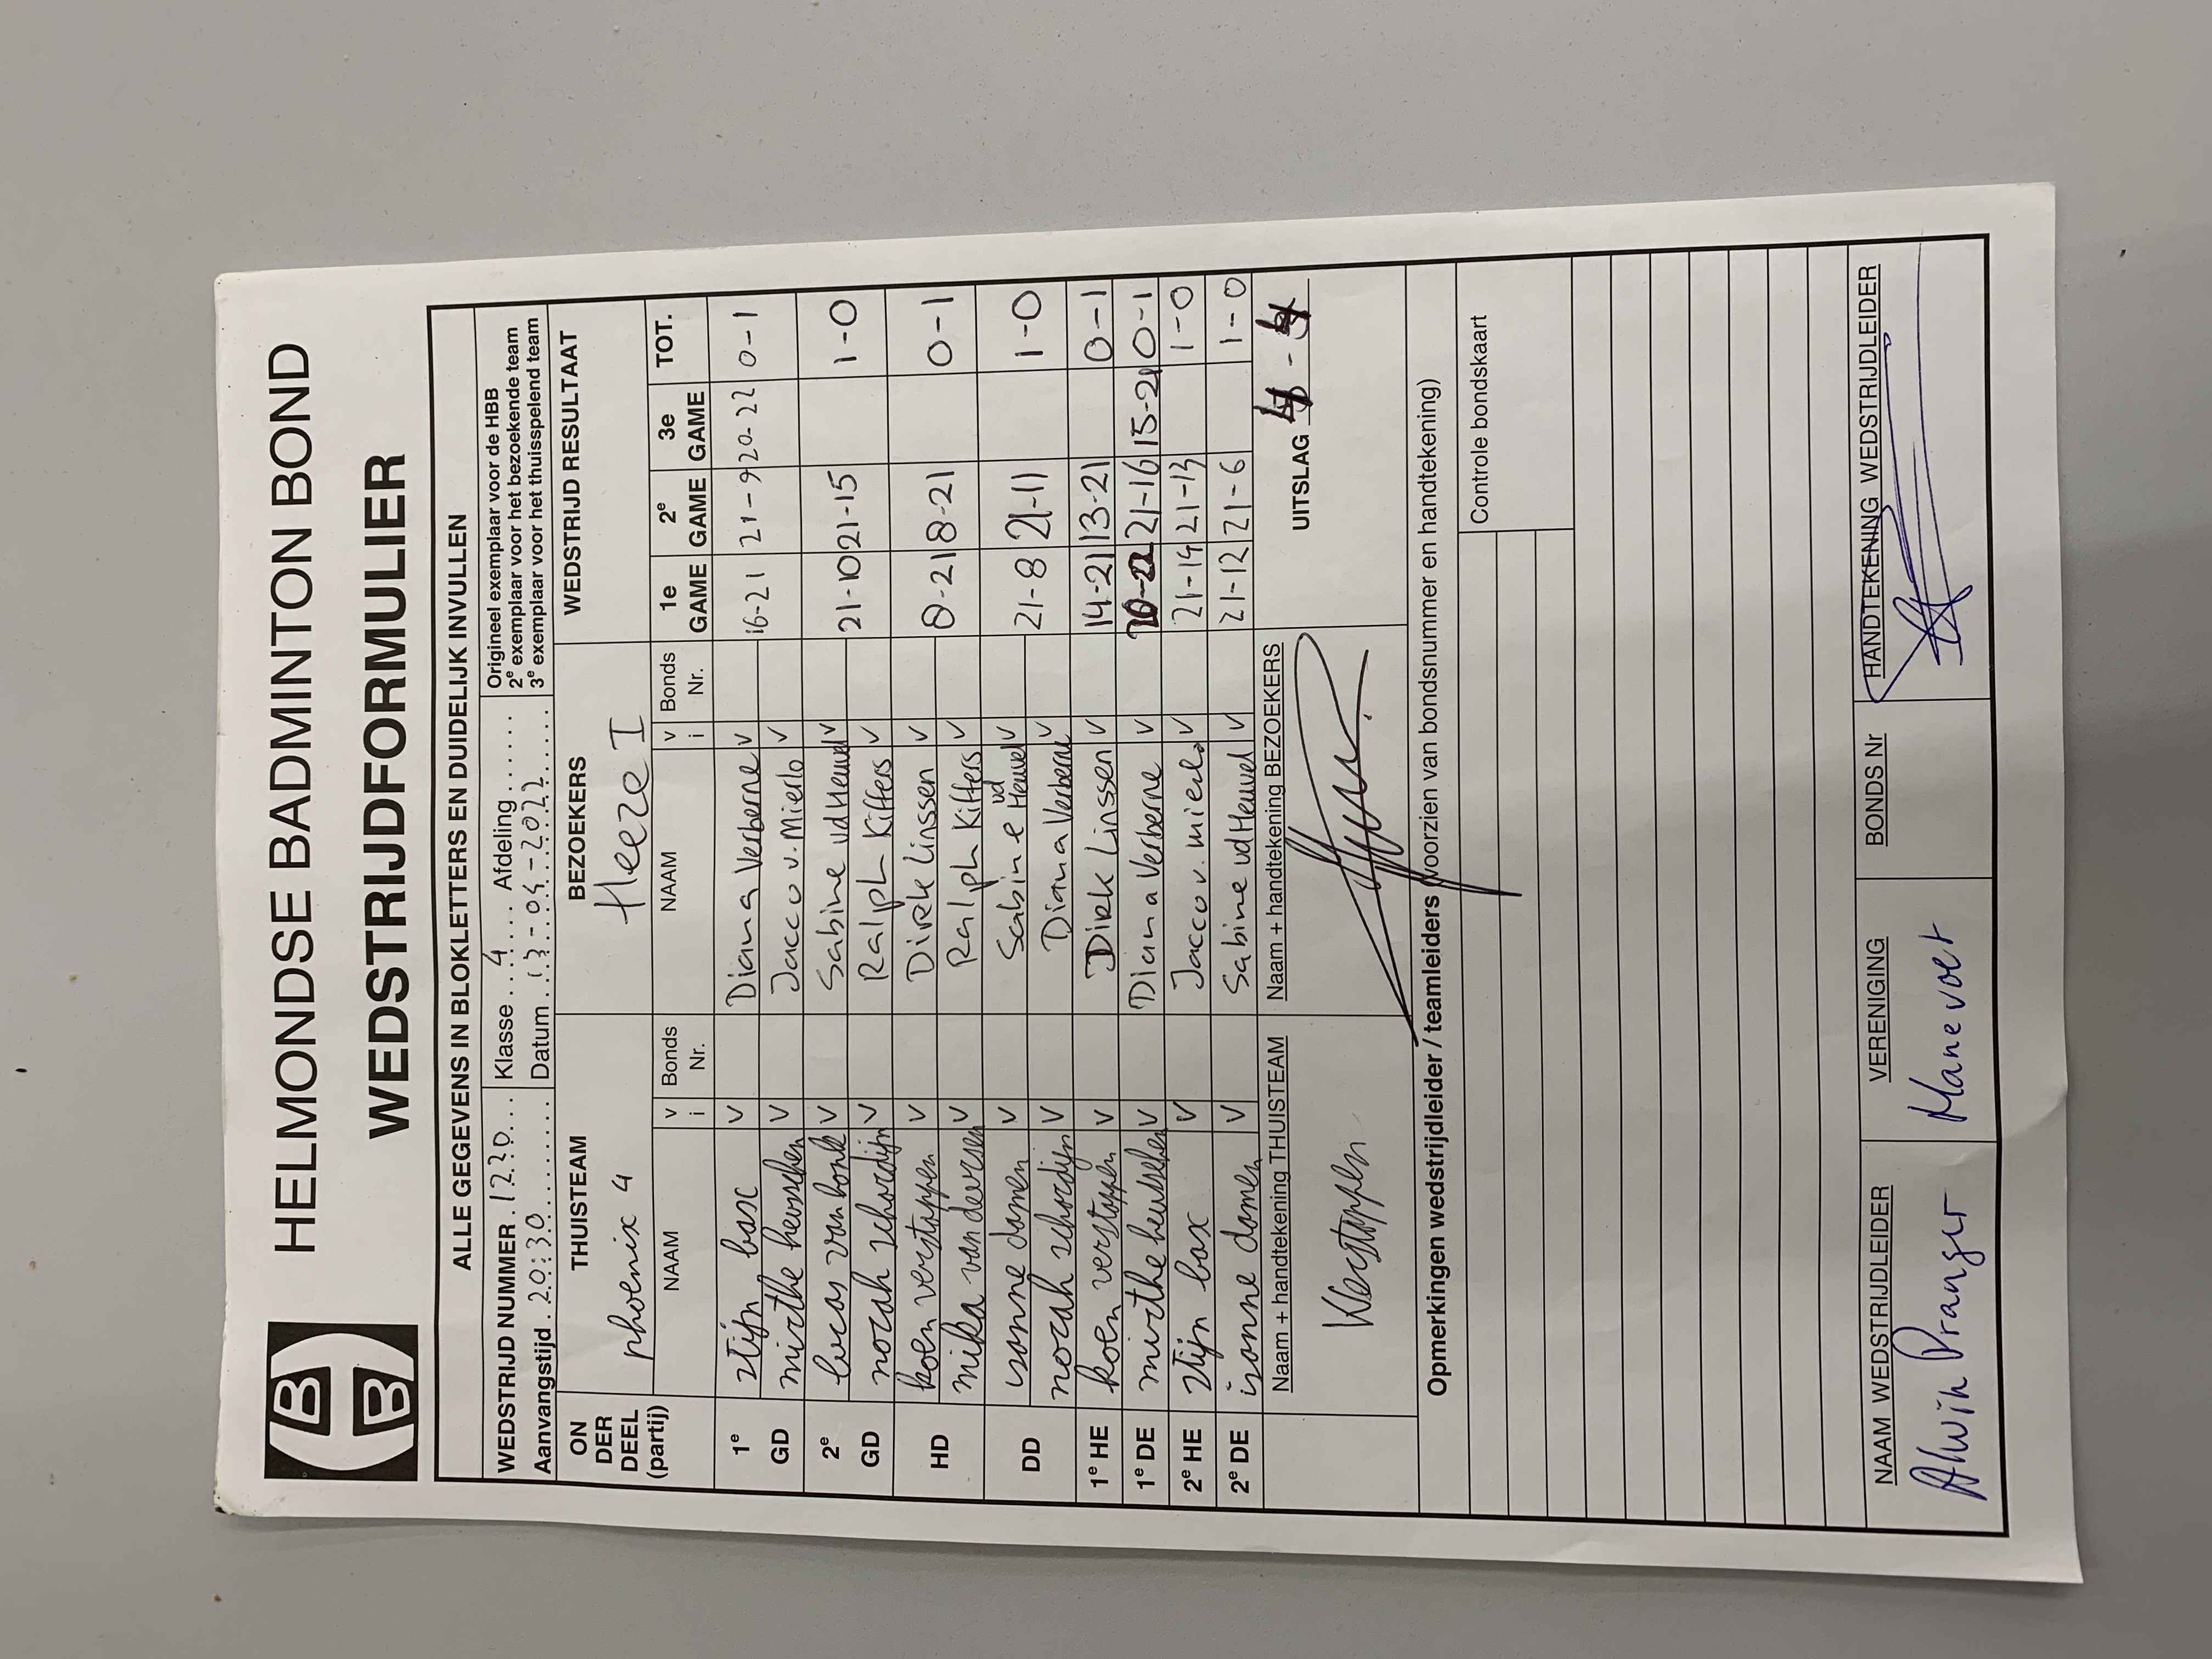 HELMONDSE BADMINTON BOND
WEDSTRIJDFORMULIER
ALLE GEGEVENS IN BLOKLETTERS EN DUIDELIJK INVULLEN
WEDSTRIJD NUMMER . 1230 ... Klasse ... 4 .... Afdeling ....... Origineel exemplaar voor de HBB
2e exemplaar voor het bezoekende team
Aanvangstijd . 20:30 ......... Datum .. 13-04-2022 ...... 3e exemplaar voor het thuisspelend team
ON DER DEEL (partij) THUISTEAM BEZOEKERS WEDSTRIJD RESULTAAT
phoenix 4 Heeze I
NAAM v i Bonds Nr. NAAM v i Bonds Nr. 1e GAME 2e GAME 3e GAME TOT.
1e GD stijn bax V Diana Verberne V 16-21 21-9 20-22 0-1
mirthe heusschen V Jacco v. Mierlo V
2e GD lucas van bonk V Sabine vd Heuvel V 21-10 21-15 1-0
norah schordijn V Ralph Kiffers V
HD koen verstappen V Dirk Linssen V 8-21 8-21 0-1
mika van deursen V Ralph Kiffers V
DD isanne damen V Sabine vd Heuvel V 21-8 21-11 1-0
norah schordijn V Diana Verberne V
1e HE koen verstappen V Dirk Linssen V 14-21 13-21 0-1
1e DE mirthe heusschen V Diana Verberne V 20-22 21-16 15-21 0-1
2e HE stijn bax V Jacco v. mierlo V 21-14 21-13 1-0
2e DE isanne damen V Sabine vd Heuvel V 21-12 21-6 1-0
Naam + handtekening THUISTEAM Naam + handtekening BEZOEKERS UITSLAG 4 - 4
Verstappen
Opmerkingen wedstrijdleider / teamleiders (voorzien van bondsnummer en handtekening)
Controle bondskaart
NAAM WEDSTRIJDLEIDER VERENIGING BONDS Nr HANDTEKENING WEDSTRIJDLEIDER
Alwin Pranger Manevoet